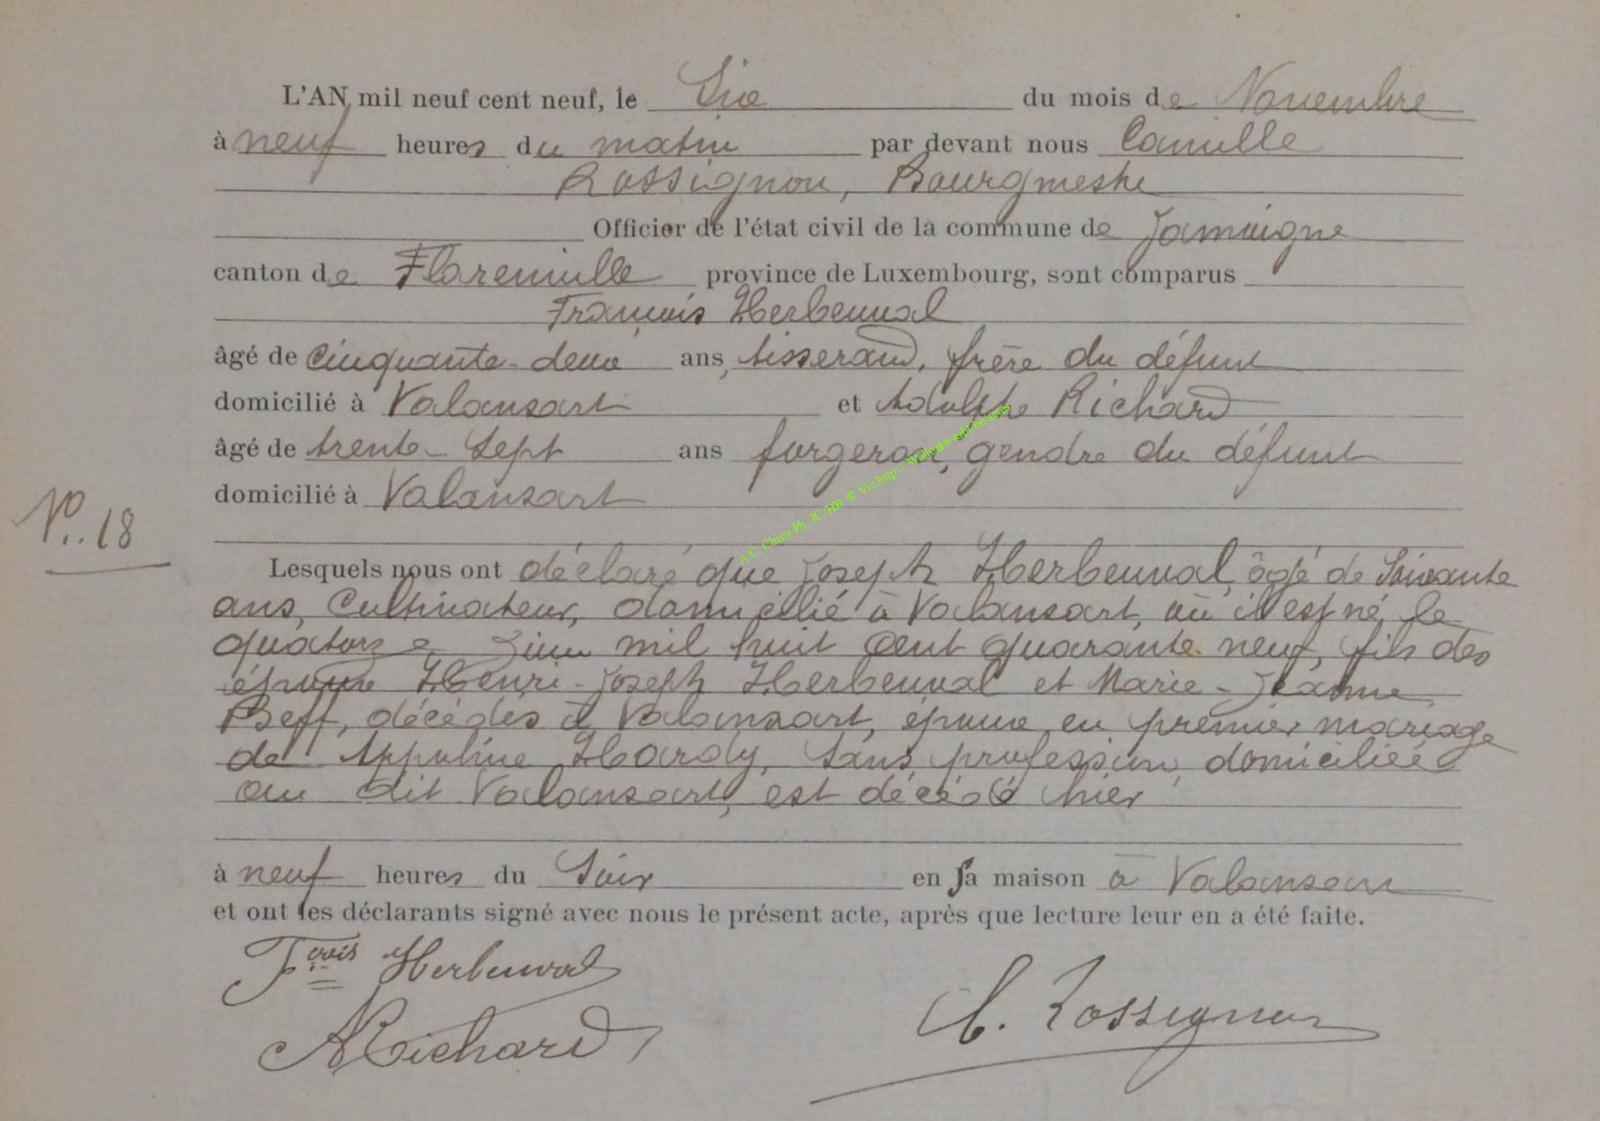 L'AN mil neuf cent neuf, le Six du mois de Novembre
à neuf heures du matin par devant nous Camille
Rossignon, Bourgmestre
Officier de l'état civil de la commune de Jamoigne
canton de Florenville province de Luxembourg, sont comparus
François Herbeuval
âgé de Cinquante-deux ans, tisserand, frère du défunt
domicilié à Valansart et Adolphe Richard
âgé de trente-sept ans forgeron, gendre du défunt
domicilié à Valansart
N°. 18
Lesquels nous ont déclaré que Joseph Herbeuval, âgé de Soixante
ans, Cultivateur, domicilié à Valansart, où il est né, le
quatorze Juin mil huit cent quarante neuf, fils des
époux Henri-Joseph Herbeuval et Marie-Jeanne
Peff, décédés à Valansart, époux en premier mariage
de Appoline Hardy, sans profession, domiciliée
au dit Valansart, est décédé hier
à neuf heures du Soir en sa maison à Valansart
et ont les déclarants signé avec nous le présent acte, après que lecture leur en a été faite.
Fçois Herbeuval
ARichard
C. Rossignon
A.C. Chiny Ph. JC/HB